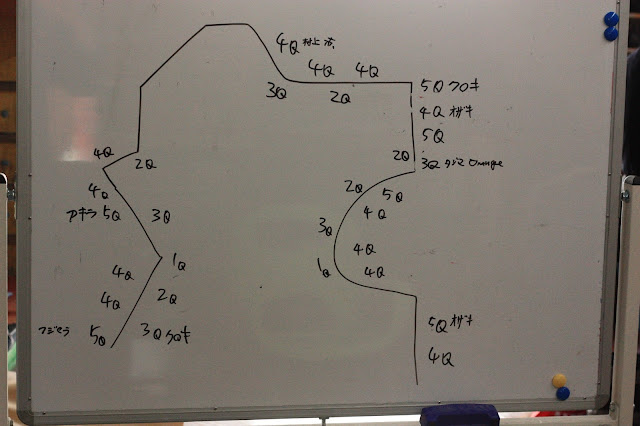 4Q 村上
4Q 4Q
3Q 2Q
5Q クロキ
4Q オザキ
5Q
2Q
3Q タジマ Orange
4Q 2Q
4Q
アキラ 5Q 3Q
2Q 5Q
4Q
3Q
4Q
1Q 4Q
1Q
4Q
4Q 2Q
フジモラ 5Q 3Q クロキ
5Q オザキ
4Q